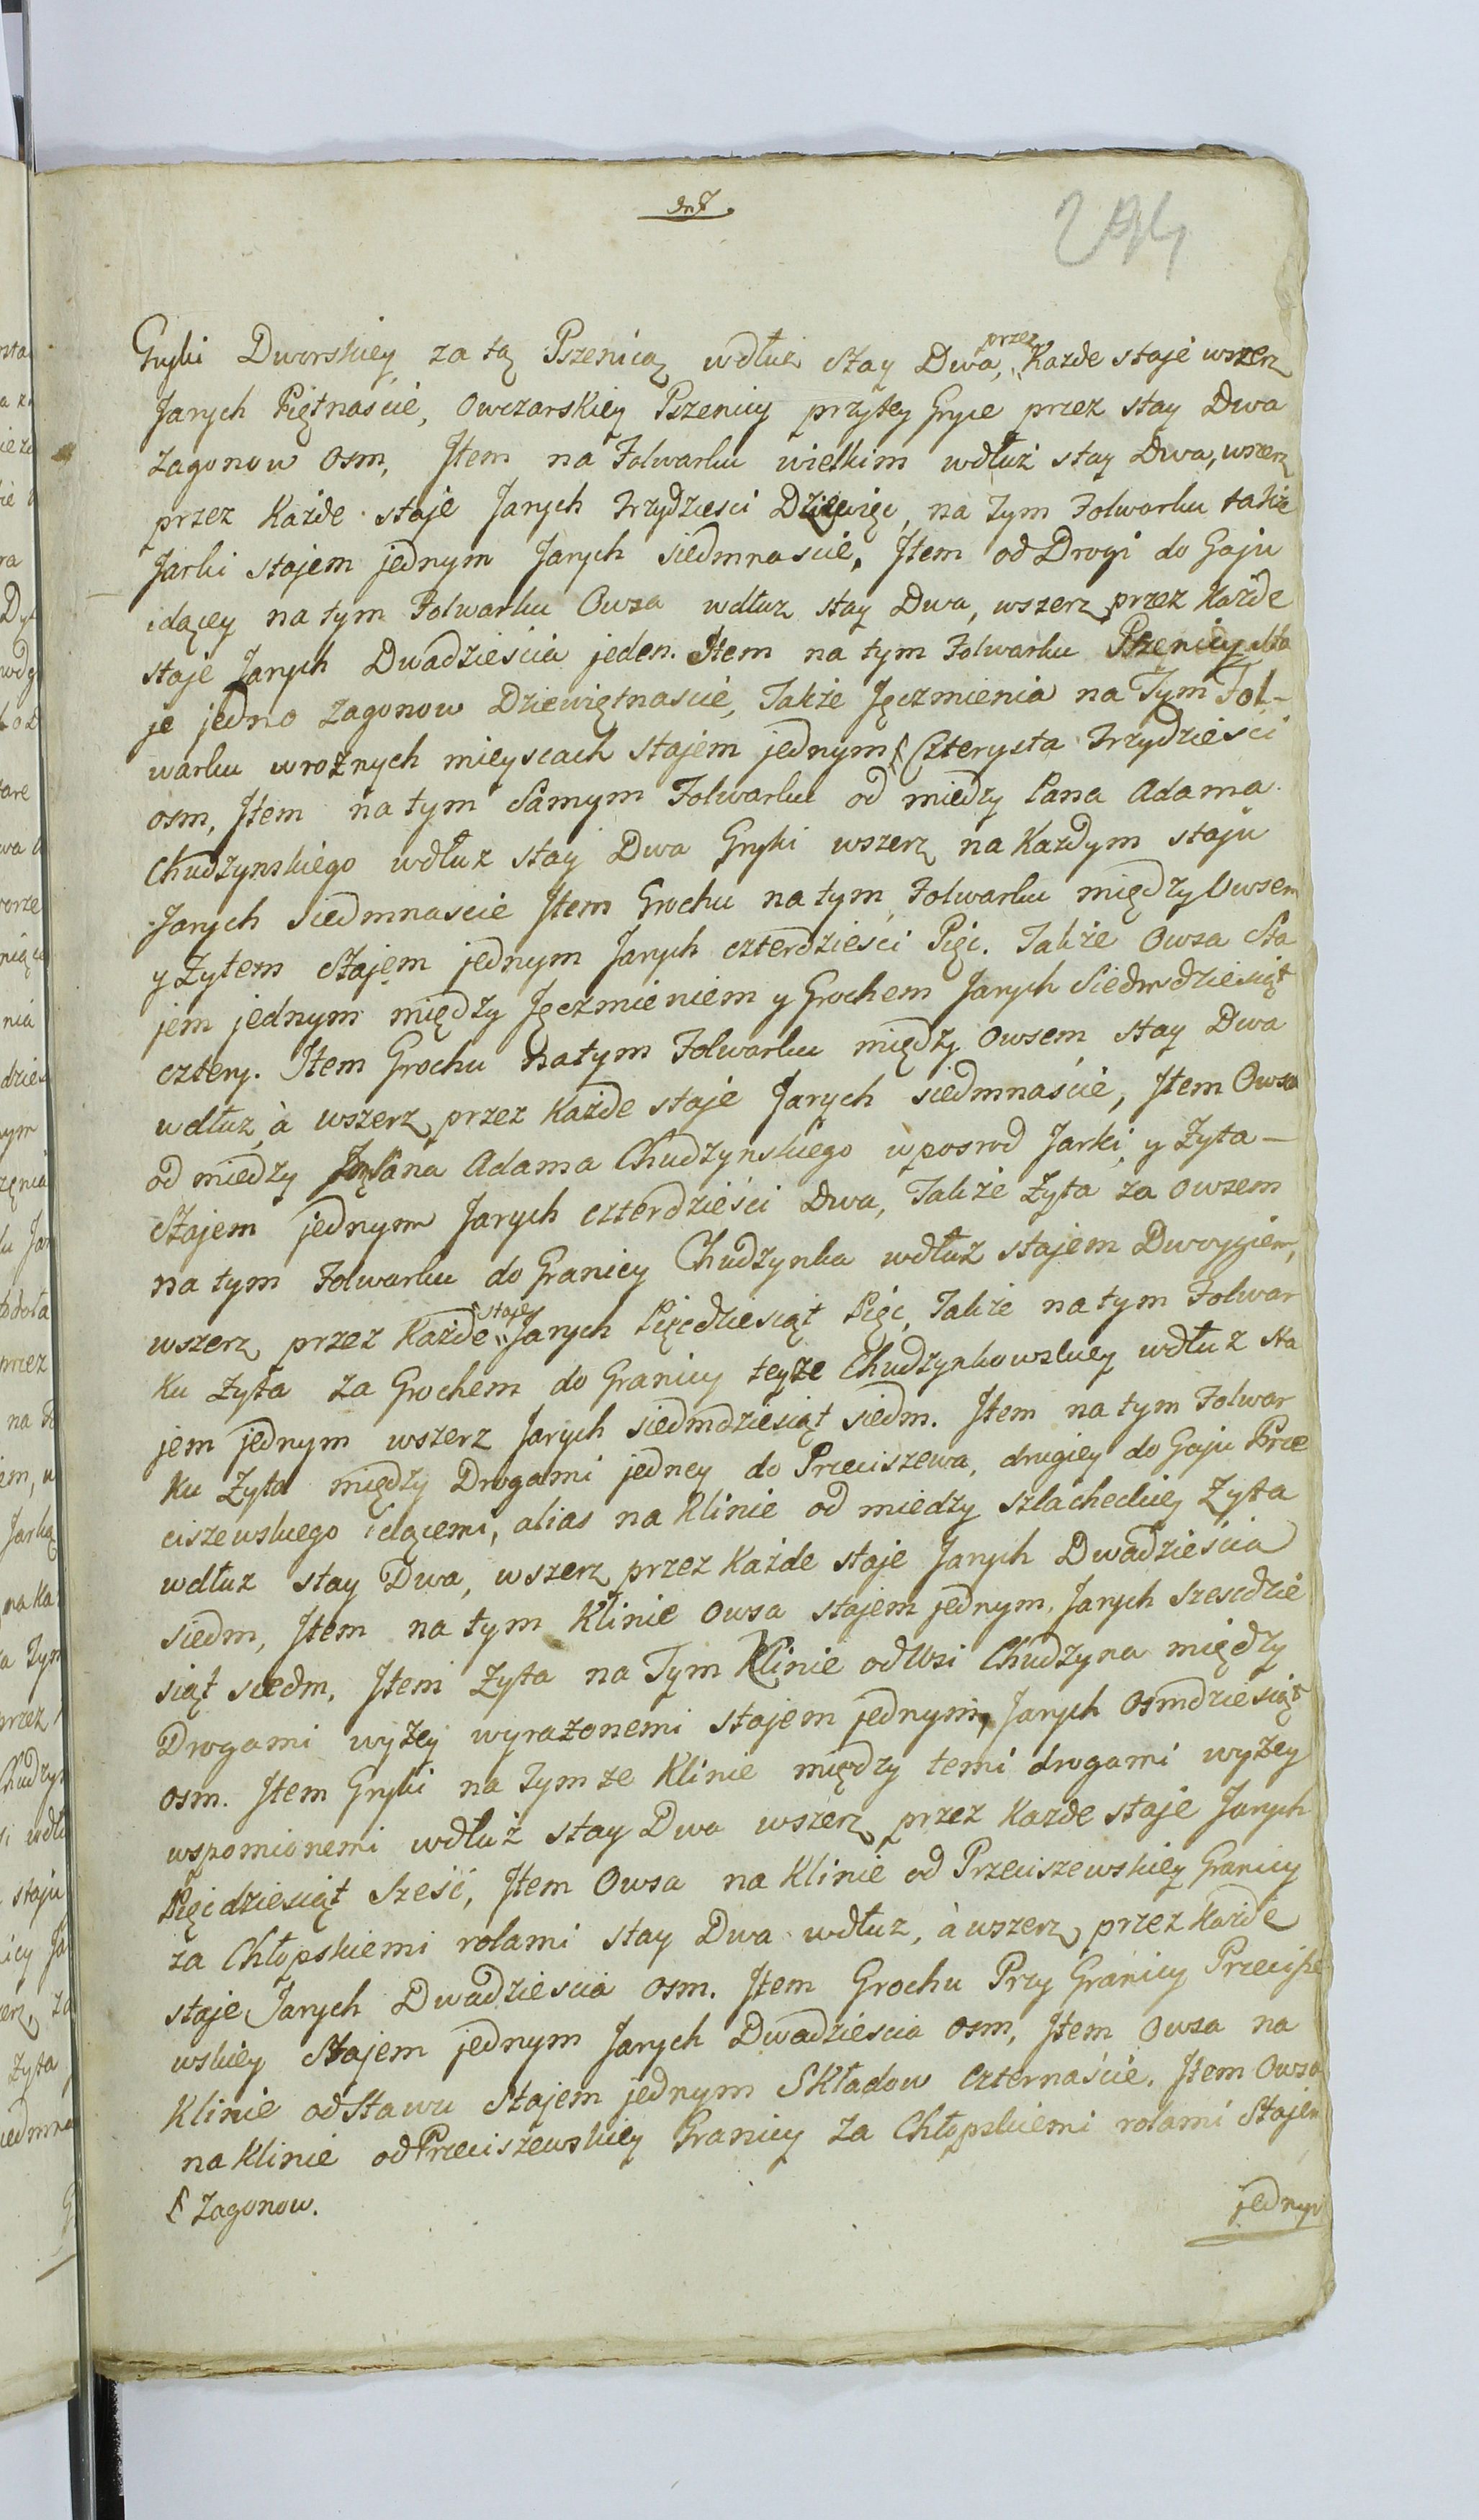 294
Gryki Dworskiey za tą Pszenicą wdłuż stay Dwa, przez Każde staje wszerz
Jarych Piętnaście, Owczarskiey Pszenicy przytey Gryce przez stay Dwa
zagonow osm, Item na Folwarku wielkim wdłuż stay Dwa, wszerz
przez Każde staje Jarych Trzydziesci Dziewięc, na Tym Folwarku także
Jarki stajem jednym Jarych siedmnascie. Item od Drogi do Gaju
idącey na tym Folwarku Owsa wdłuz stay Dwa, wszerz przez Każde
staje Jarych Dwadzieścia jeden. Item na tym Folwarku Pszenicy sta
je jedno zagonow Dziewiętnascie, Także Jęczmienia na Tym Fol-
warku wrożnych mieyscach stajem jednym ſ Czterysta Trzydzieści
osm, Item na tym Samym Folwarku od miedzy Pana Adama
Chudzynskiego wdłuż stay Dwa Gryki wszerz na Każdym staju
Jarych siedmnascie Item Grochu na tym Folwarku między Owsem
y Zytem stajem jednym Jarych czterdzieści Pięc. Także Owsa sta
jem jednym między Jęczmieniem y Grochem Jarych Siedmdziesiąt
cztery. Item Grochu natym Folwarku między Owsem stay Dwa
wdłuz, à wszerz przez Każde staje Jarych siedmnaście, Item Owsa
od miedzy Pana Adama Chudzynskiego wposrod Jarki y Zyta —
stajem jednym Jarych czterdzieści Dwa, Także Zyta za owsem
na tym Folwarku do Granicy Chudzynka wdłuż stajem Dwoygiem,
wszerz przez Każde staje Jarych Pięcdziesiąt Pięc, Także na tym Folwar
Ku Zyta za Grochem do Granicy teyże Chudzynkowskiey wdłuż sta
jem jednym wszerz Jarych siedmdziesiąt siedm. Item na tym Folwar
Ku Zyta między Drogami jedney do Preciszewa, drugiey do Gaju Prze
ciszewskiego idącemi, alias na Klinie od miedzy szlacheckiey Zyta
wdłuz stay Dwa, wszerz przez Każde staje Jarych Dwadzieścia
siedm, Item na tym Klinie Owsa stajem jednym, Jarych szescdzie
siąt siedm, Item Zyta na Tym Klinie od Wsi Chudzyna między
Drogami wyżey wyrażonemi stajem jednym, Jarych Osmdziesiąt
osm. Item Gryki na Tymze Klinie między temi drogami wyżey
wspomionemi wdłuż stay Dwa wszerz przez Każde staje Jarych
Pięcdziesiąt Sześć, Item Owsa na Klinie od Przeciszewskiey Granicy
za Chłopskiemi rolami stay Dwa wdłuz, à wszerz przez Każde
staje Jarych Dwadzieścia osm. Item Grochu Przy Granicy Przecisze
wskiey stajem jednym Jarych Dwadzieścia osm, Item Owsa na
Klinie odStawu stajem jednym Składow czternaście. Item Owsa
na Klinie odPrzeciszewskiey Granicy za Chłopskiemi rolami stajem
ſ Zagonow.
jednym